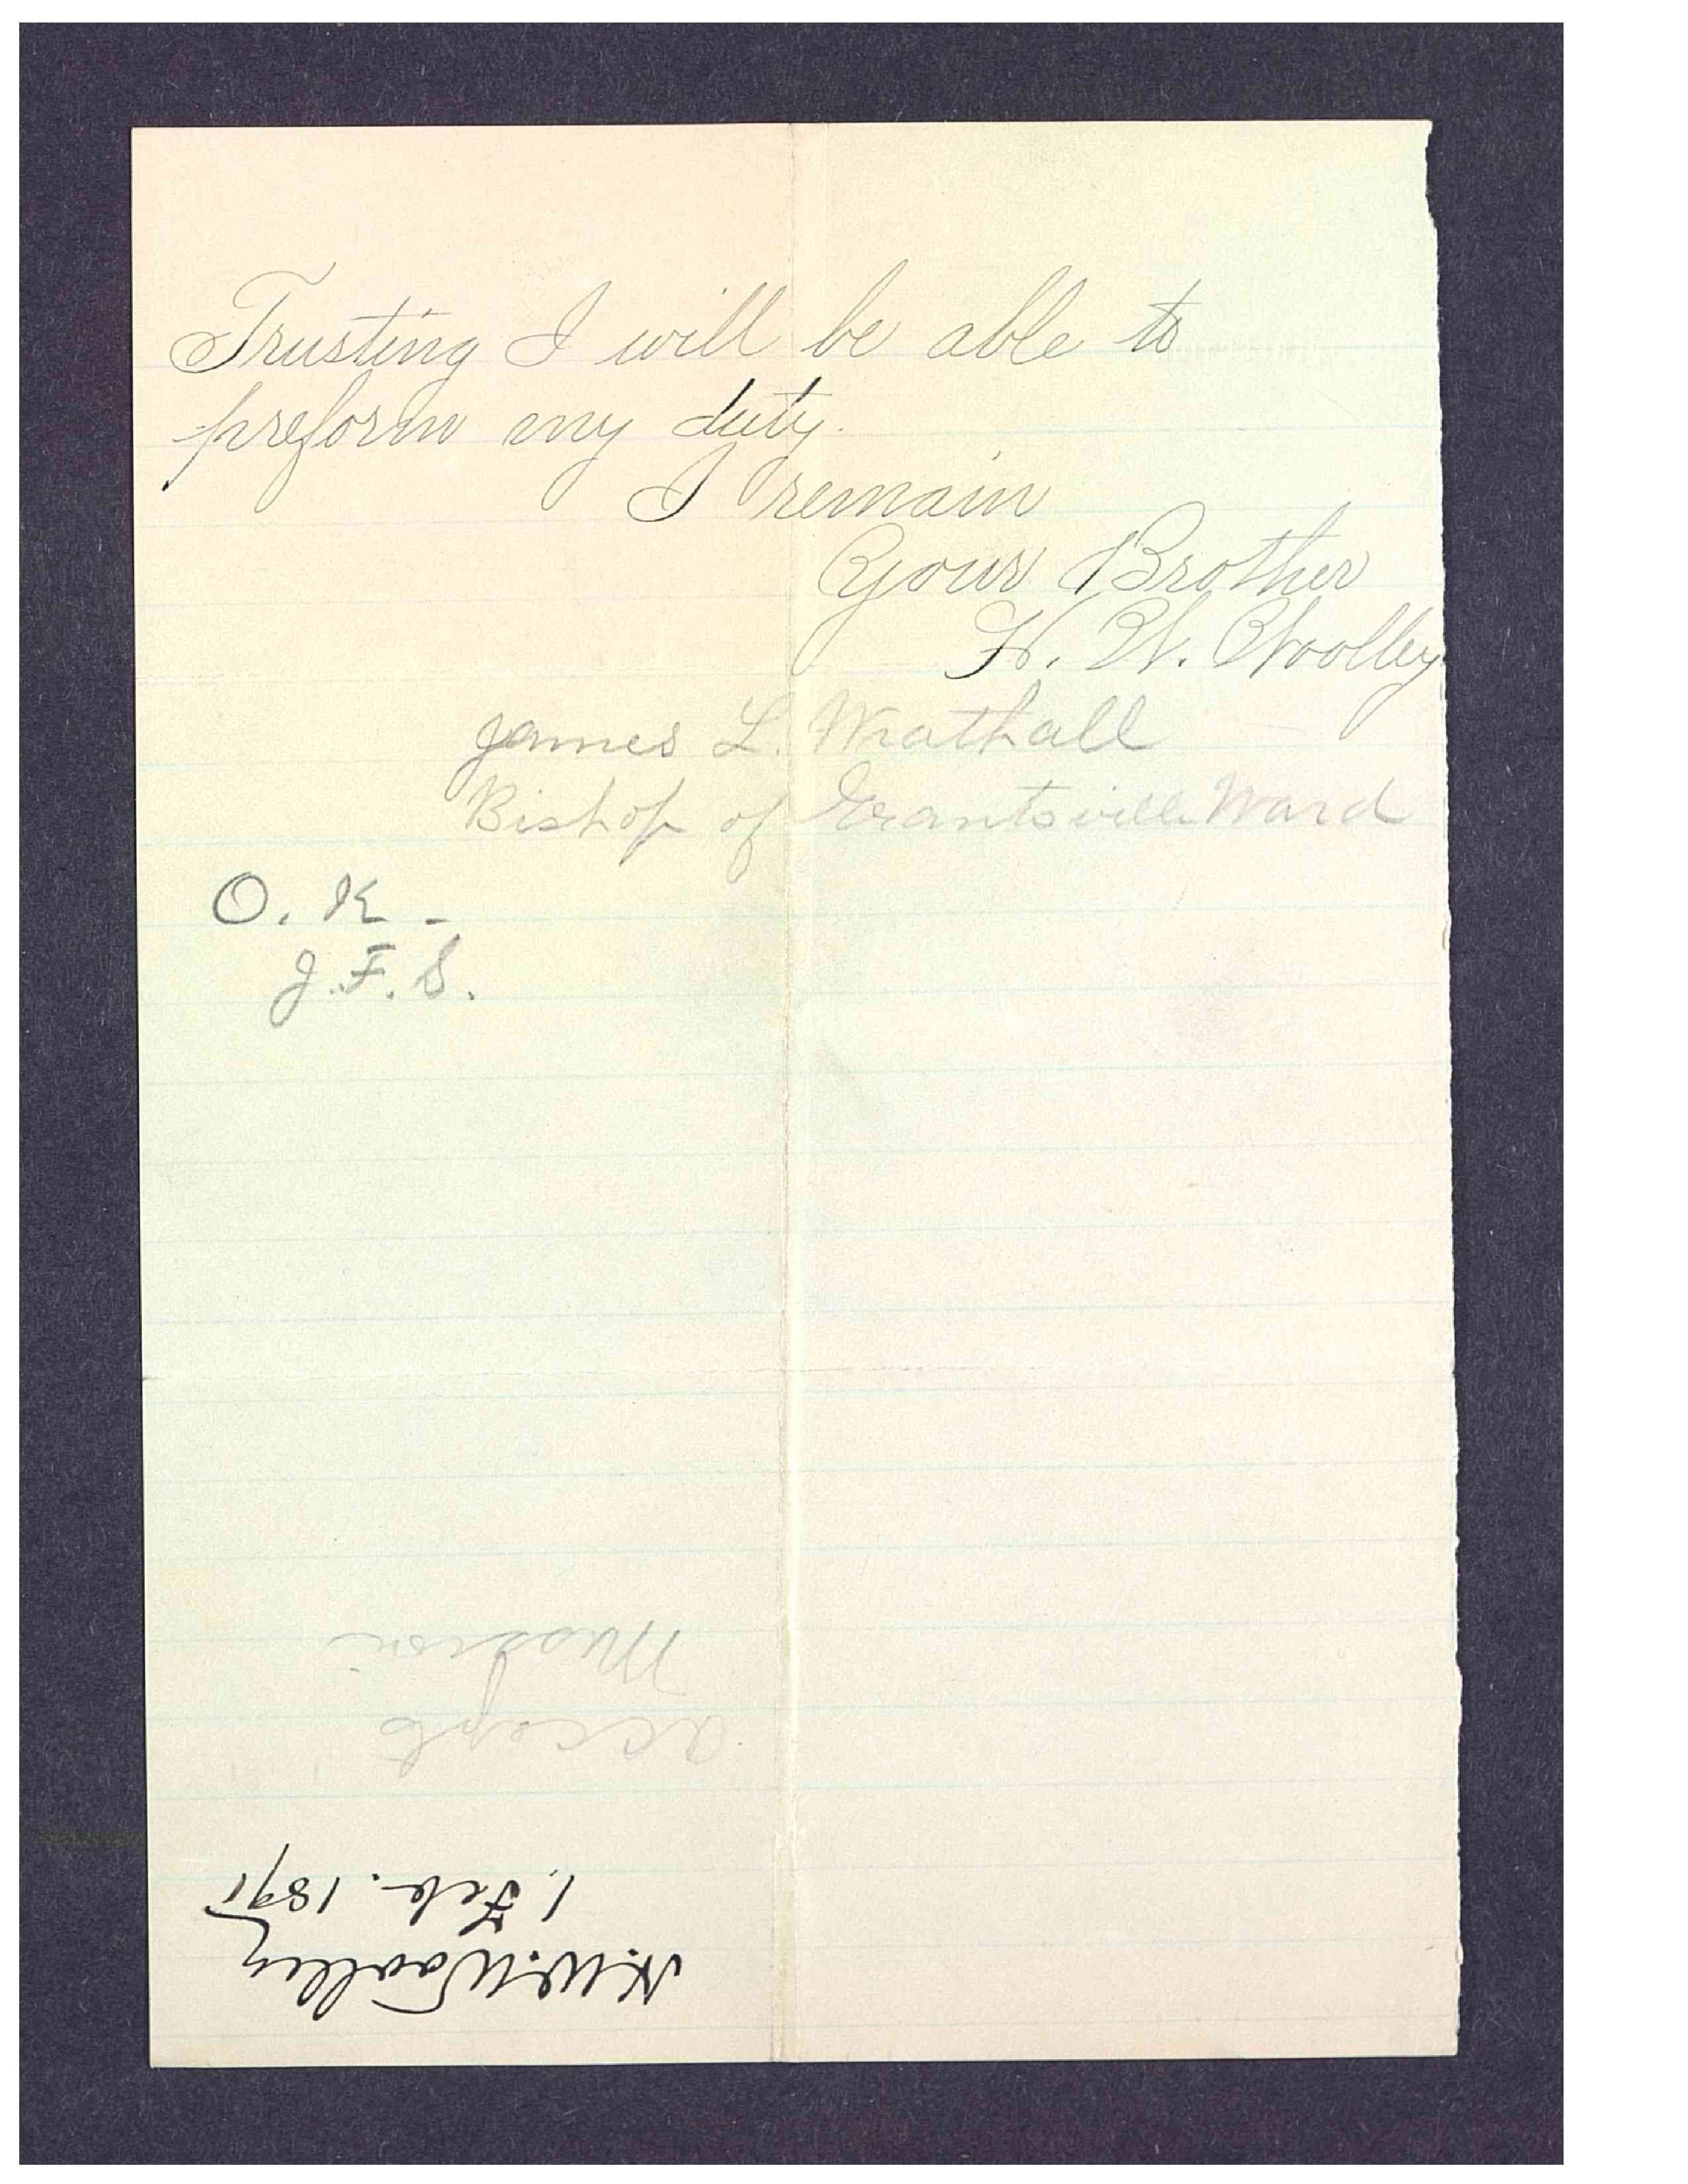 Trusting I will be able to
preform my duty.
I remain
Your Brother
H. W. Woolley
James L. Wrathall
Bishop of Grantsville Ward
O. K. -
J. F. S.
H. W. Woolley
1. Feb. 189
accepts
Mission